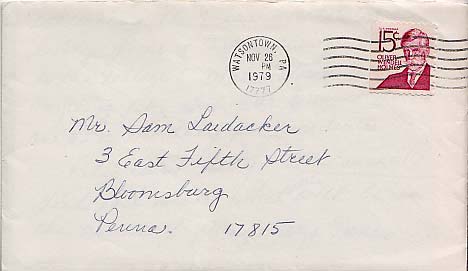 WATSONTOWN, PA
NOV 26
PM
1979
17777
15¢
OLIVER
WENDELL
HOLMES
Mr. Sam Laidacker
3 East Fifth Street
Bloomsburg
Penna. 17815